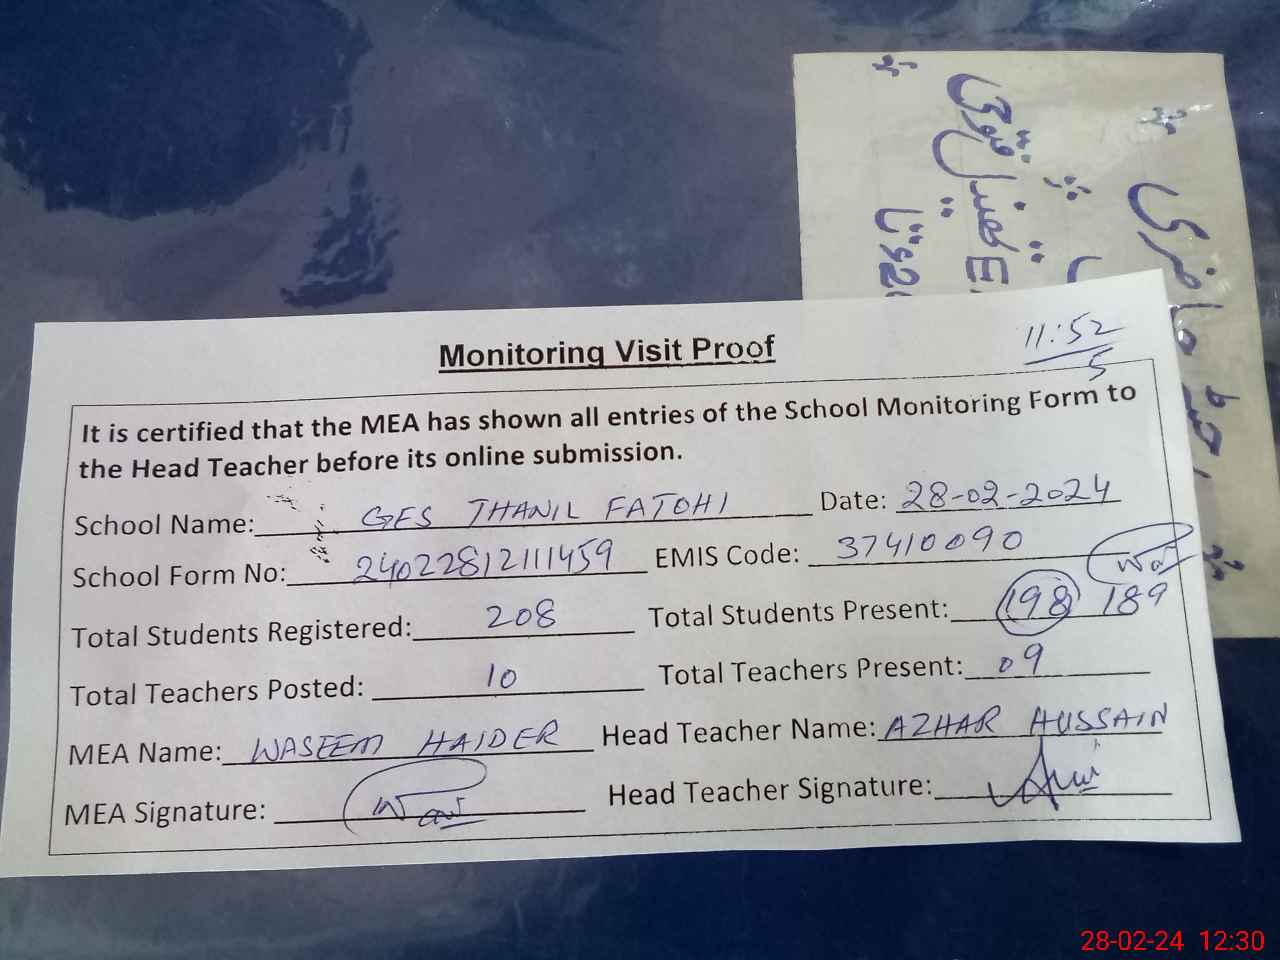 Monitoring Visit Proof
11:52
5
It is certified that the MEA has shown all entries of the School Monitoring Form to
the Head Teacher before its online submission.
School Name: GES THANIL FATOHI Date: 28-02-2024
School Form No: 24022812111459 EMIS Code: 37410090
Total Students Registered: 208 Total Students Present: 198 189
Total Teachers Posted: 10 Total Teachers Present: 09
MEA Name: WASEEM HAIDER Head Teacher Name: AZHAR HUSSAIN
MEA Signature: Head Teacher Signature:
28-02-24 12:30